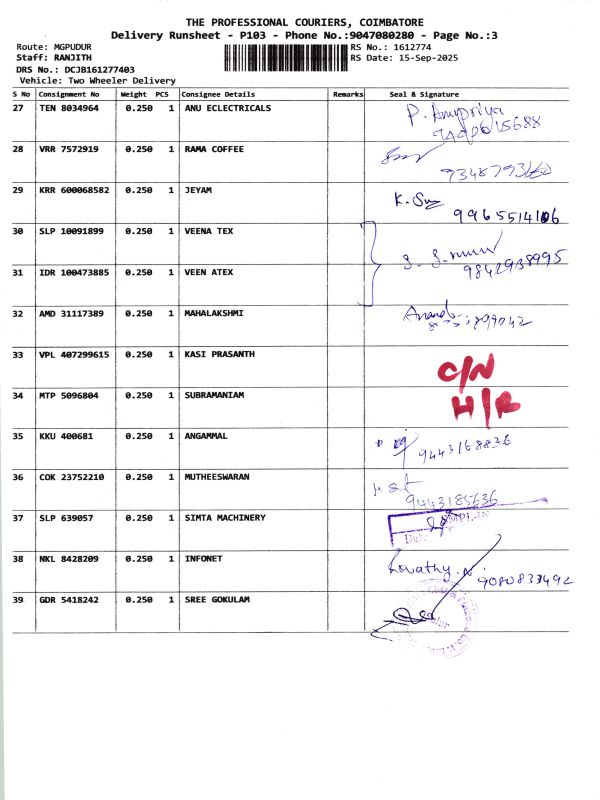 THE PROFESSIONAL COURIERS, COIMBATORE
Delivery Runsheet - P103 - Phone No.:9047080280 - Page No.:3
Route: MGPUDUR RS No.: 1612774
Staff: RANJITH RS Date: 15-Sep-2025
DRS No.: DCJB161277403
Vehicle: Two Wheeler Delivery
S No Consignment No Weight PCS Consignee Details Remarks Seal & Signature
27 TEN 8034964 0.250 1 ANU ECLECTRICALS P. Anupriya
28 VRR 7572919 0.250 1 RAMA COFFEE
29 KRR 600068582 0.250 1 JEYAM K.
30 SLP 10091899 0.250 1 VEENA TEX
31 IDR 100473885 0.250 1 VEEN ATEX 9842938995
32 AMD 31117389 0.250 1 MAHALAKSHMI
33 VPL 407299615 0.250 1 KASI PRASANTH C/N
34 MTP 5096804 0.250 1 SUBRAMANIAM H/R
35 KKU 400681 0.250 1 ANGAMMAL 9443168836
36 COK 23752210 0.250 1 MUTHEESWARAN
9443185636
37 SLP 639057 0.250 1 SIMTA MACHINERY
38 NKL 8428209 0.250 1 INFONET
9080833492
39 GDR 5418242 0.250 1 SREE GOKULAM